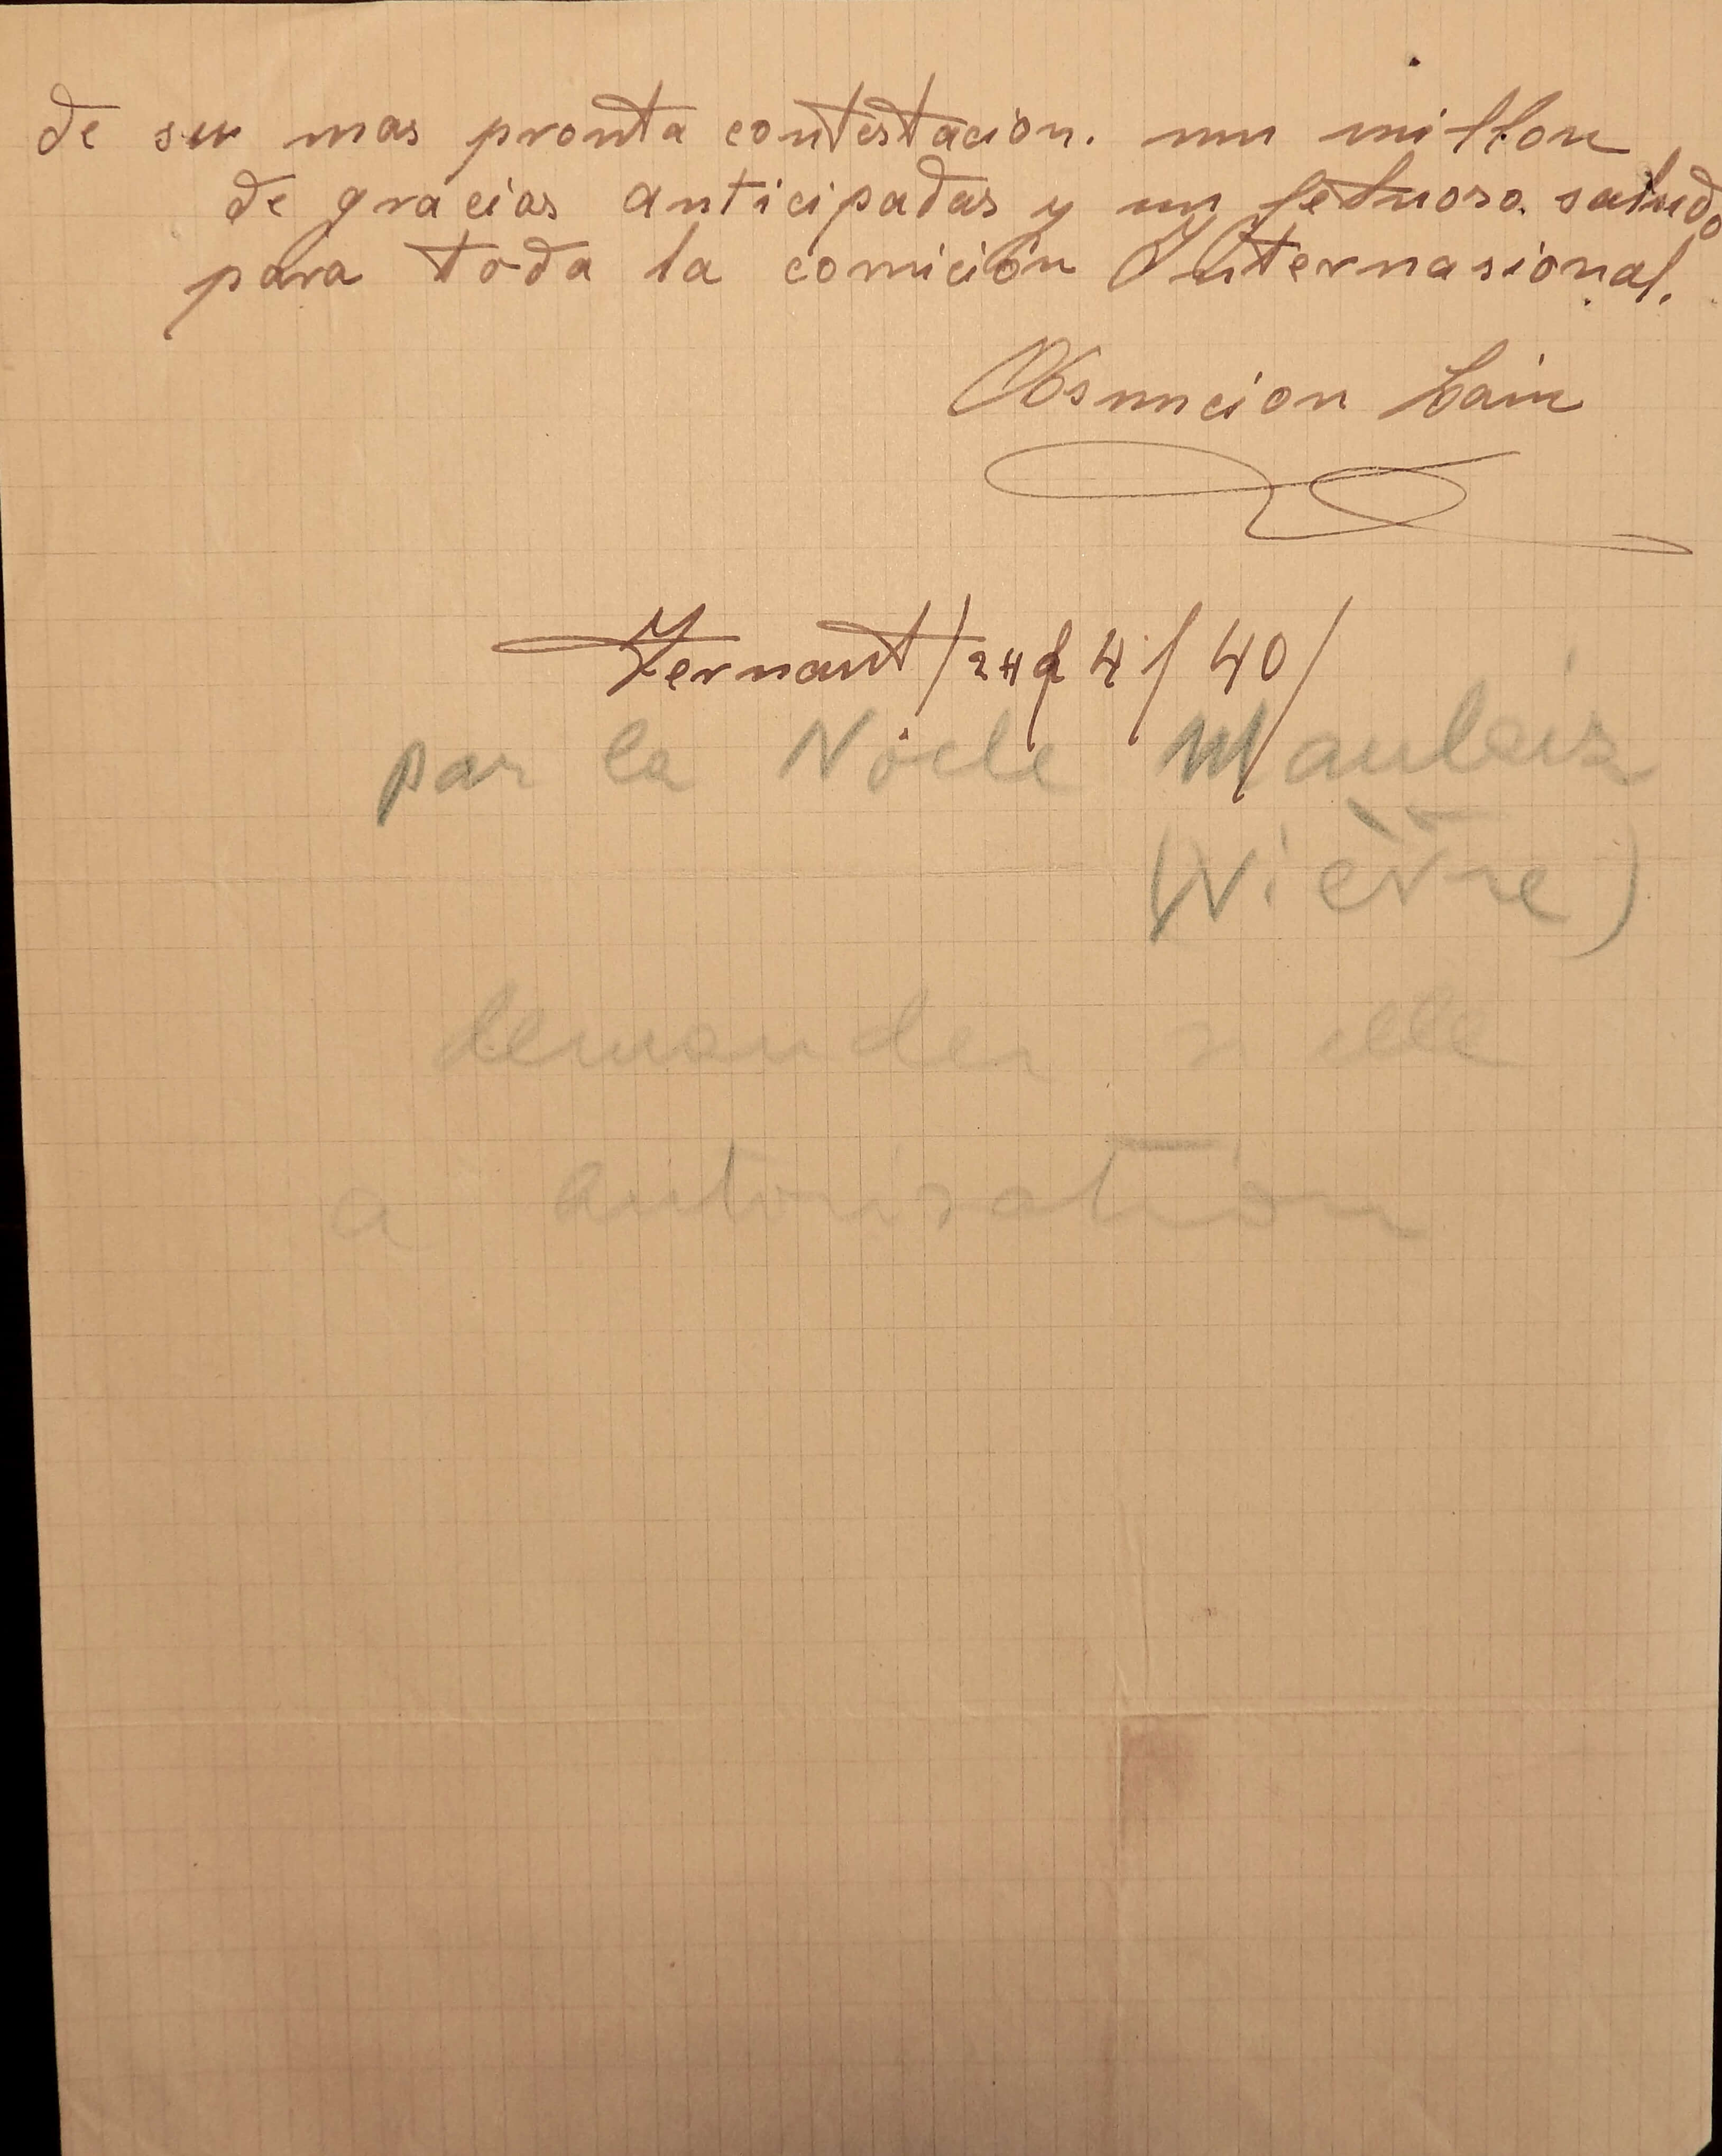 de su mas pronta contestacion. un millon
de gracias anticipadas y un fetuoso saludo
para toda la comición Internasional.
Asuncion Lain
Ternant / 24 / 4 / 40 /
par la Nocle Maulaix
(Nièvre)
demander si elle
a autorisation